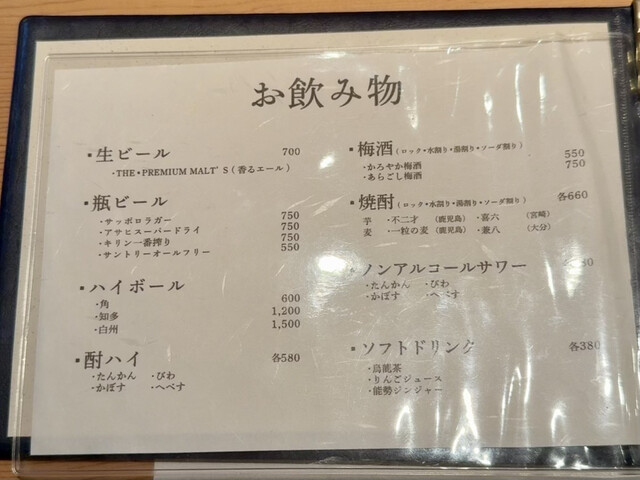 お飲み物
・生ビール 700
・THE・PREMIUM MALT'S(香るエール)
・瓶ビール
・サッポロラガー 750
・アサヒスーパードライ 750
・キリン一番搾り 750
・サントリーオールフリー 550
・ハイボール
・角 600
・知多 1,200
・白州 1,500
・酎ハイ 各580
・たんかん ・びわ
・かぼす ・へべす
・梅酒(ロック・水割り・湯割り・ソーダ割り)
・かろやか梅酒 550
・あらごし梅酒 750
・焼酎(ロック・水割り・湯割り・ソーダ割り) 各660
芋 ・不二才(鹿児島) ・喜六(宮崎)
麦 ・一粒の麦(鹿児島) ・兼八(大分)
ノンアルコールサワー
・たんかん ・びわ
・かぼす ・へべす
・ソフトドリンク 各380
・烏龍茶
・りんごジュース
・能勢ジンジャー